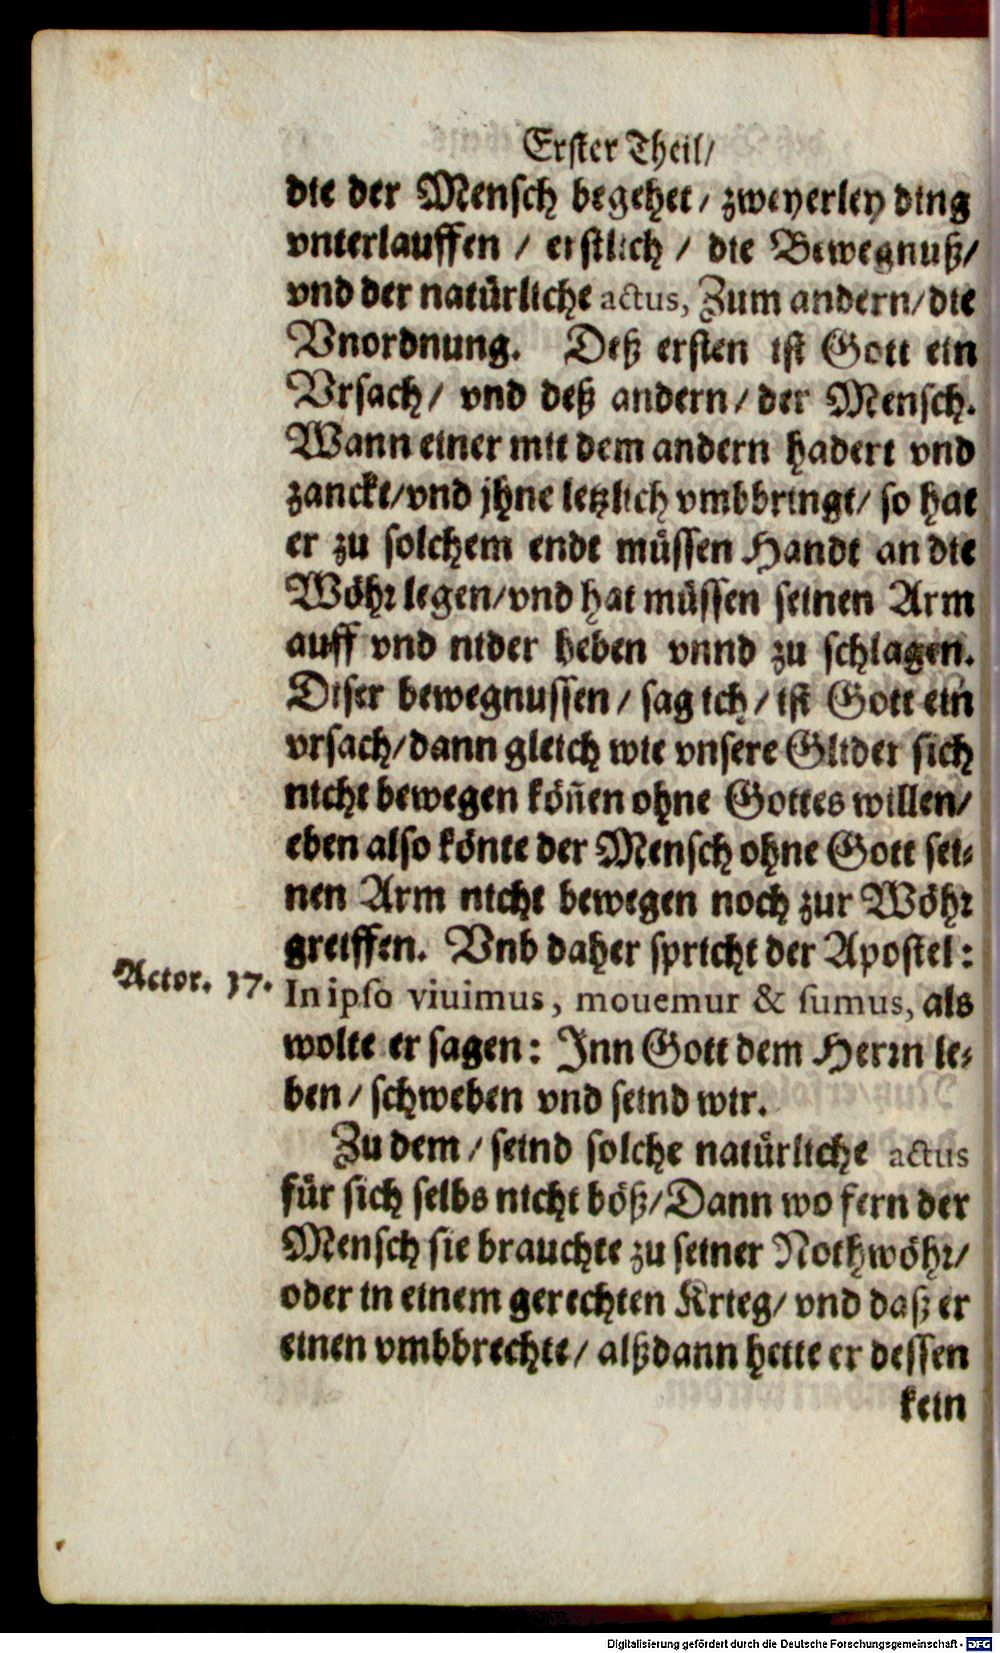 Erster Theil/
die der Mensch begehet/ zweyerley ding
vnterlauffen / erstlich / die Bewegnuß/
vnd der natürliche actus, Zum andern/die
Vnordnung. Deß ersten ist Gott ein
Vrsach/ vnd deß andern/ der Mensch.
Wann einer mit dem andern hadert vnd
zanckt/vnd jhne letzlich vmbbringt/ so hat
er zu solchem endt müssen Handt an die
Wöhr legen/vnd hat müssen seinen Arm
auff vnd nider heben vnnd zu schlagen.
Diser bewegnussen/ sag ich/ ist Gott ein
vrsach/dann gleich wie vnsere Glider sich
nicht bewegen köñen ohne Gottes willen/
eben also könte der Mensch ohne Gott sei⸗
nen Arm nicht bewegen noch zur Wöhr
greiffen. Vnb daher spricht der Apostel:
Actor. 17. In ipso viuimus, mouemur & sumus, als
wolte er sagen: Inn Gott dem Herrn le⸗
ben/ schweben vnd seind wir.
Zu dem/ seind solche natürliche actus
für sich selbs nicht böß/Dann wo fern der
Mensch sie brauchte zu seiner Nothwöhr/
oder in einem gerechten Krieg/ vnd daß er
einen vmbbrechte/ alßdann hette er dessen
kein
Digitalisierung gefördert durch die Deutsche Forschungsgemeinschaft - DFG